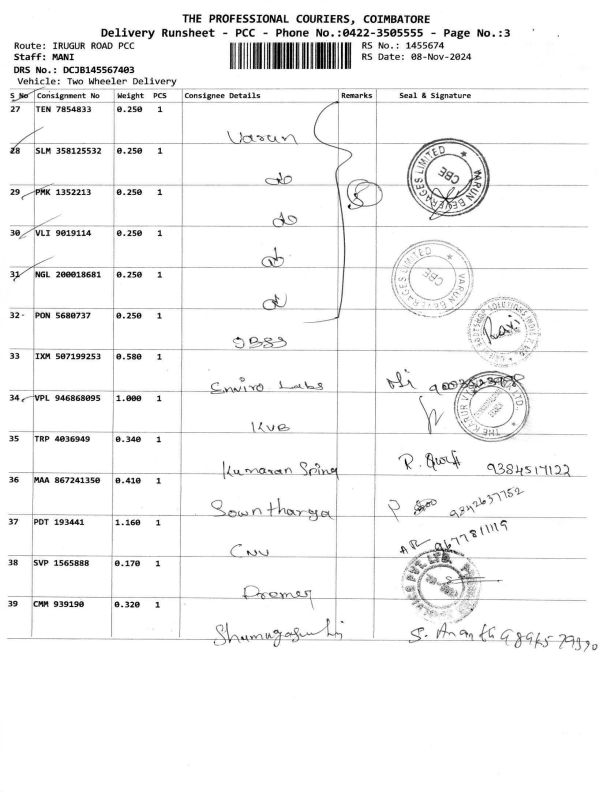 THE PROFESSIONAL COURIERS, COIMBATORE
Delivery Runsheet - PCC - Phone No.:0422-3505555 - Page No.:3
Route: IRUGUR ROAD PCC RS No.: 1455674
Staff: MANI RS Date: 08-Nov-2024
DRS No.: DCJB145567403
Vehicle: Two Wheeler Delivery
S No Consignment No Weight PCS Consignee Details Remarks Seal & Signature
27 TEN 7854833 0.250 1
Varun
28 SLM 358125532 0.250 1
do
VARUN BEVERAGES LIMITED CBE
29 PMK 1352213 0.250 1
5
do
30 VLI 9019114 0.250 1
do
VARUN BEVERAGES LIMITED CBE
31 NGL 200018681 0.250 1
do
32 PON 5680737 0.250 1
Ravi
33 IXM 507199253 0.580 1
Enviro Labs
34 VPL 946868095 1.000 1
KVB
THE KARUR LTD.
35 TRP 4036949 0.340 1
Kumaran Sping R. 9384517122
36 MAA 867241350 0.410 1
Sowntharya P 9342637752
37 PDT 193441 1.160 1
CNU AR 9677811119
38 SVP 1565888 0.170 1
Premer
PVT. LTD.
39 CMM 939190 0.320 1
S. Ananth